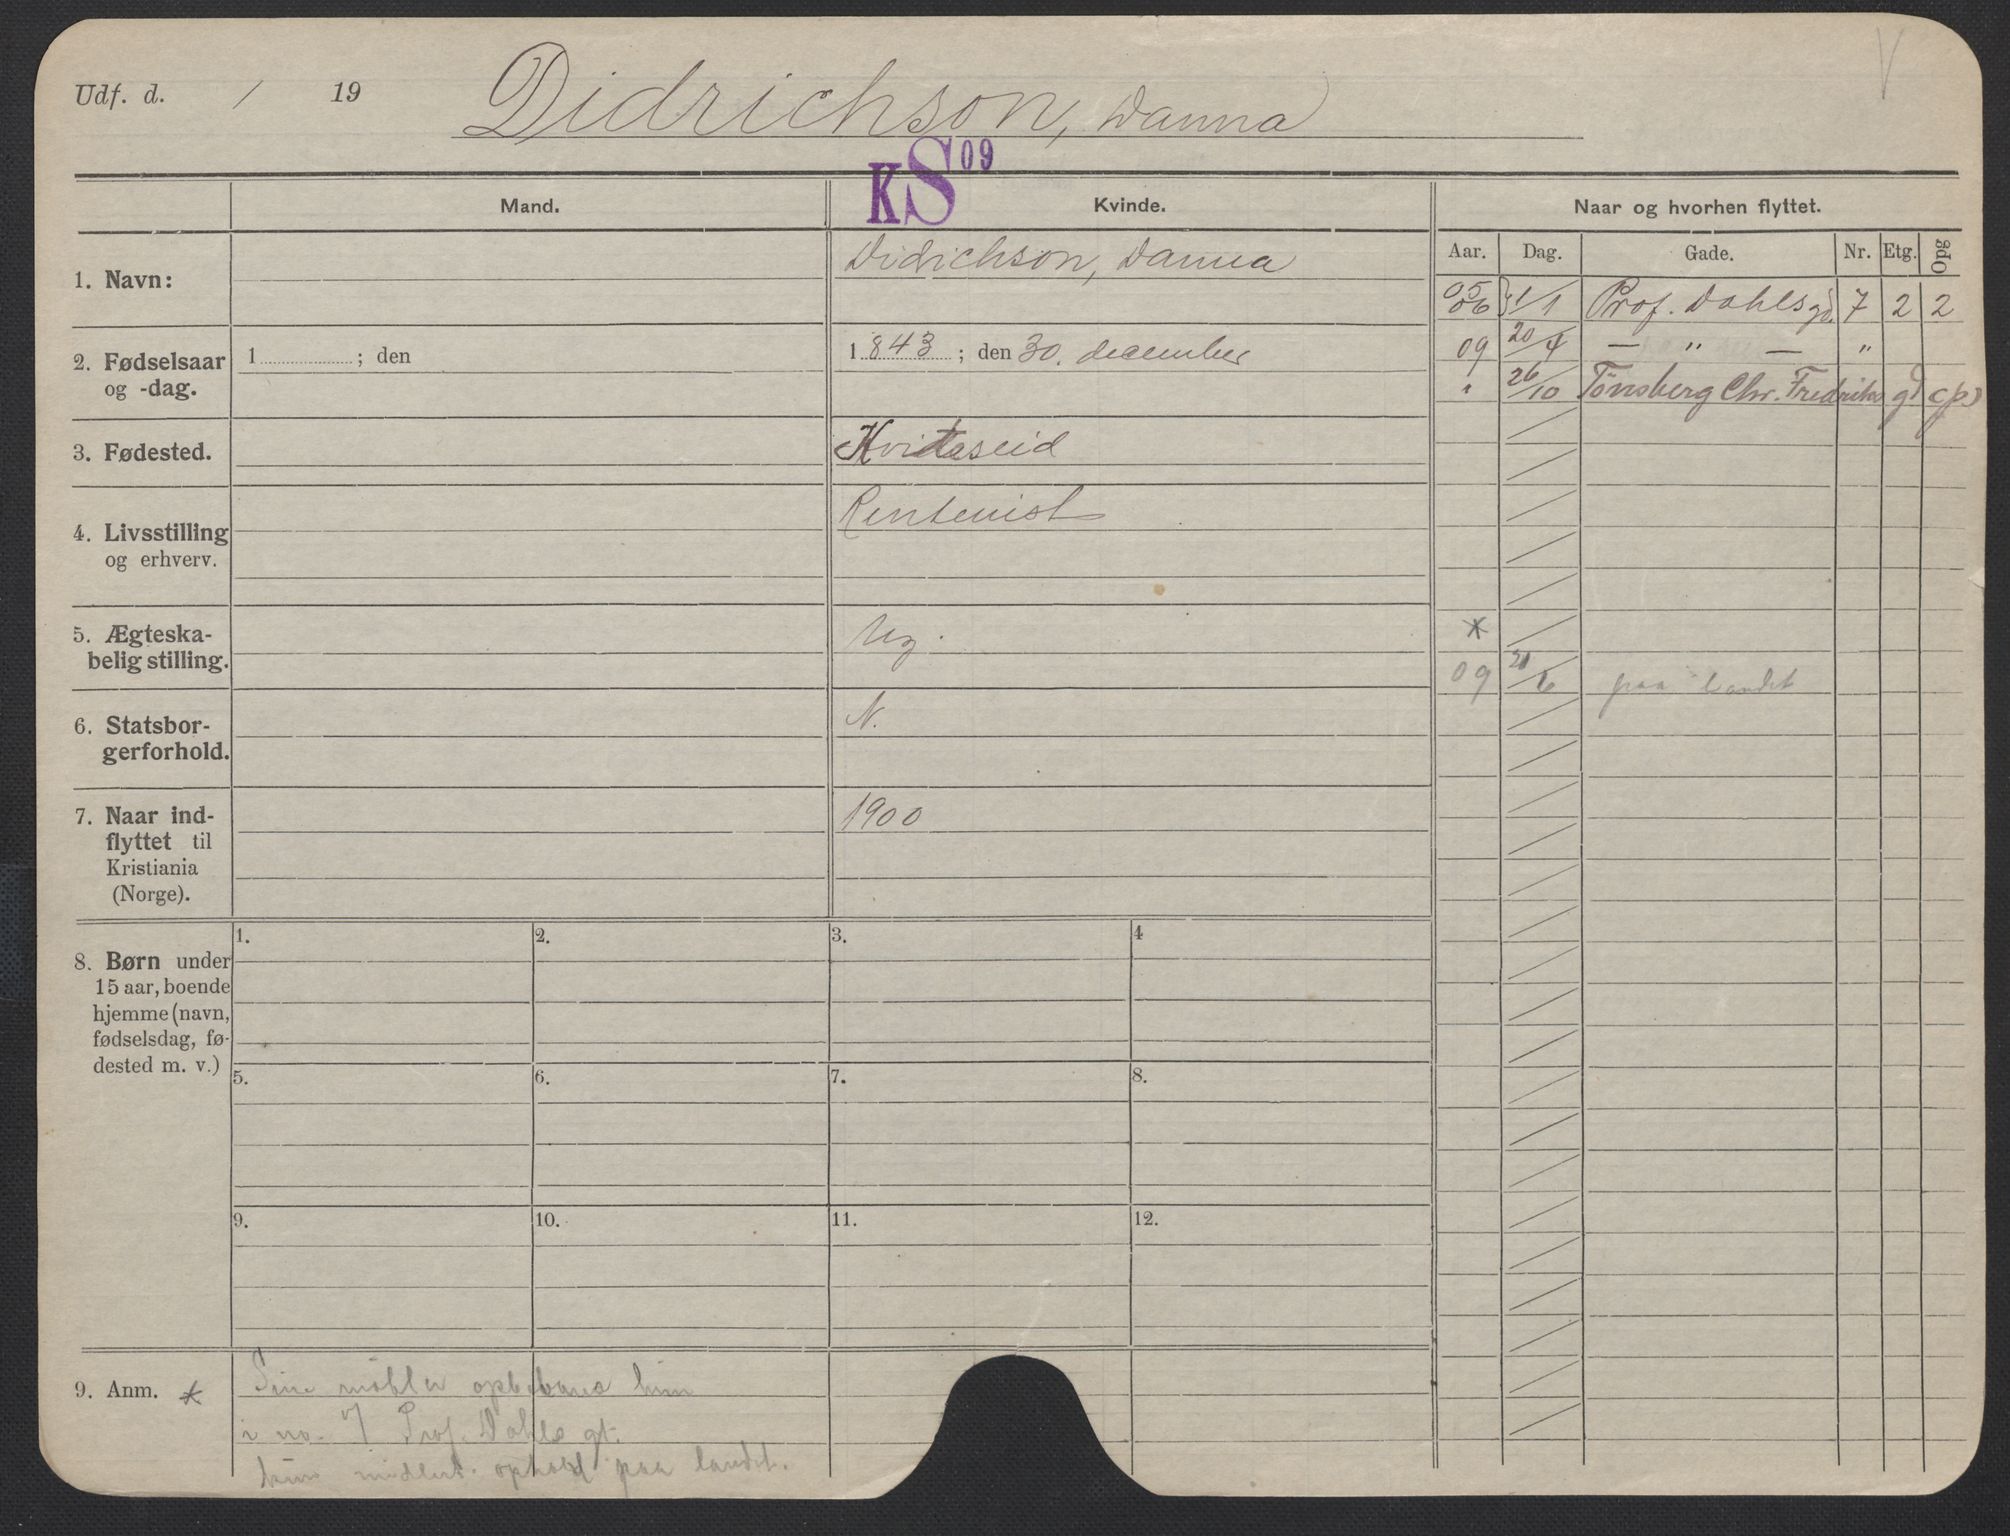 Udf. d. / 19 Didrichson, Danna
KS 09
Mand. Kvinde. Naar og hvorhen flyttet.
Aar. Dag. Gade. Nr. Etg. Opg
1. Navn: Didrichson, Danna
05
06 } 1/1 Prof. Dahlsgd. 7 2 2
2. Fødselsaar og -dag. 1 ; den 1843; den 30. december
09 20/4 — „ — „
„ 26/10 Tønsberg Chr. Fredriks gd cp)
3. Fødested. Kviteseid
4. Livsstilling og erhverv. Rentenist
5. Ægteska-
belig stilling. Ug.
*
09 21/6 paa landet
6. Statsbor-
gerforhold. N.
7. Naar ind-
flyttet til
Kristiania
(Norge).
1900
8. Børn under
15 aar, boende
hjemme (navn,
fødselsdag, fø-
dested m. v.)
1. 2. 3. 4
5. 6. 7. 8.
9. 10. 11. 12.
9. Anm. * Sine møbler opbevares hun
i no. 7 Prof. Dahls gt.
kun midlert. ophold paa landet.